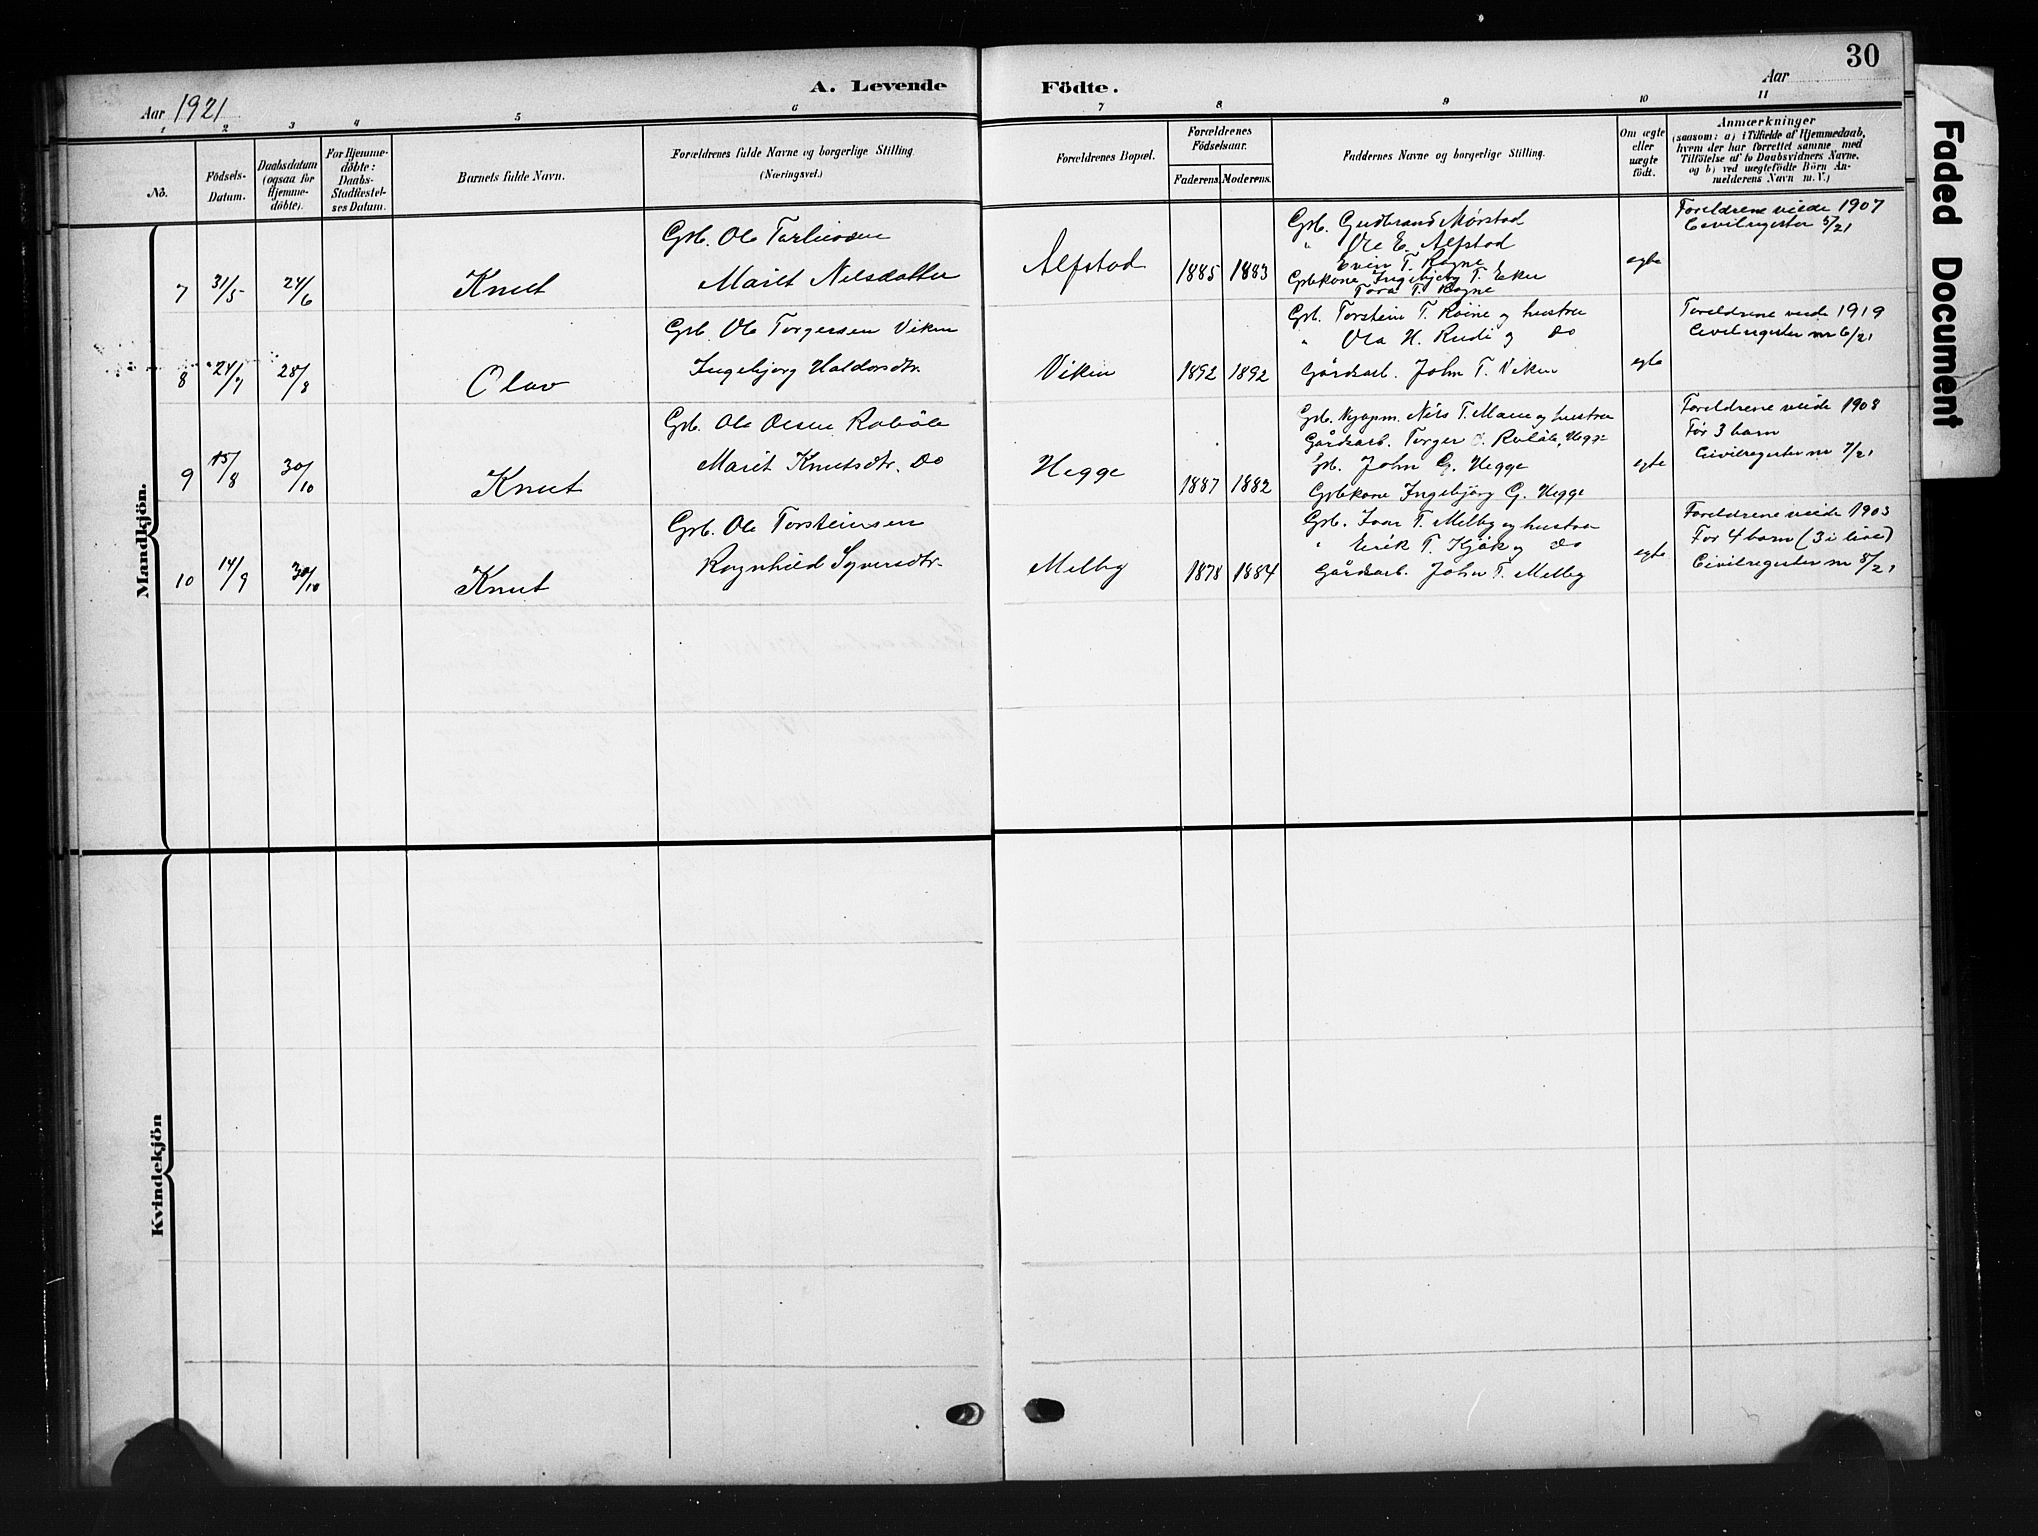 30
A. Levende Födte.
Aar 1921
Aar
1 2 3 4 5 6 7 8 9 10 11
No.
Födsels-Datum.
Daabsdatum (ogsaa for Hjemme-döbte).
For Hjemme-döbte: Daabs-Stadfæstel-ses Datum.
Barnets fulde Navn.
Forældrenes fulde Navne og borgerlige Stilling. (Næringsvei.)
Forældrenes Bopæl.
Forældrenes Födselsaar.
Faderens. Moderens.
Faddernes Navne og borgerlige Stilling.
Om ægte eller uægte födt.
Anmærkninger
(saasom: a) i Tilfælde af Hjemmedaab, hvem der har forrettet samme med Tilföielse af to Daabsvidners Navne, og b) ved uægtefödte Börn An-melderens Navn m. V.)
Mandkjön.
7 31/5 24/6 Knut
Grb. Ole
Marit Nilsdatter
Alfstad 1885 1883
Grb. Gudbrand Mørstad
" Ole E. Alfstad
Even T. Rogne
Grbkone Ingebjørg T. Eken
Tora T. Rogne
egte
Foreldrene viede 1907
Civilregister 5/21
8 24/7 28/8 Olav
Grb. Ole Torgersen Viken
Ingebjørg Haldorsdtr.
Viken 1892 1892
Grb. Torstein T. Röine og hustru
" Ola H. Rudi og Do
Gårdsarb. John T. Viken
egte
Foreldrene viede 1919
Civilregister nr 6/21
9 15/8 30/10 Knut
Grb. Ole Olsen Robøle
Marit Knutsdtr. Do
Hegge 1887 1882
Grb. Nils T. og hustru
Gårdsarb. Torger O. Robøle, Hegge
Grb. John G. Hegge
Grbkone Ingebjørg G. Hegge
egte
Foreldrene viede 1908
Før 3 barn
Civilregister nr 7/21
10 14/9 30/10 Knut
Grb. Ole Torsteinsen
Ragnhild Syversdtr.
Melby 1878 1884
Grb. Ivar T. Melby og hustru
" Erik T. Kjøk og Do
Gårdsarb. John T. Melby
egte
Foreldrene viede 1903
Før 4 barn (3 i live)
Civilregister nr 8/21
Kvindekjön
Faded Document